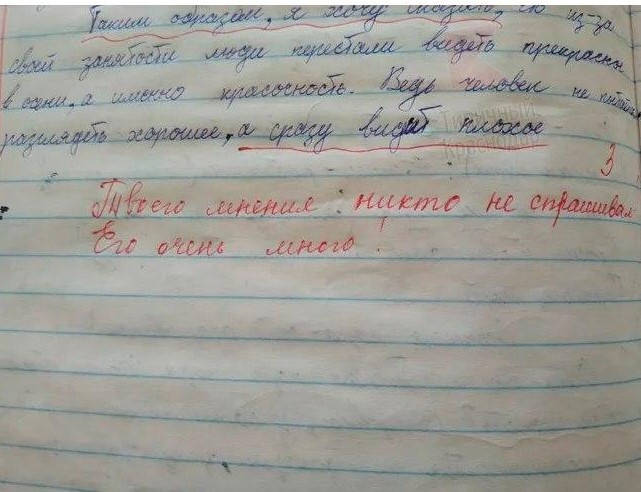 Таким образом, я хочу сказать, что из-за
своей занятости люди перестали видеть прекрасное
в осени, а именно красочность. Ведь человек не пытается
разглядеть хорошее, а сразу видит плохое
Типичный
Краснодар
3
Твоего мнения никто не спрашивал
Его очень много!